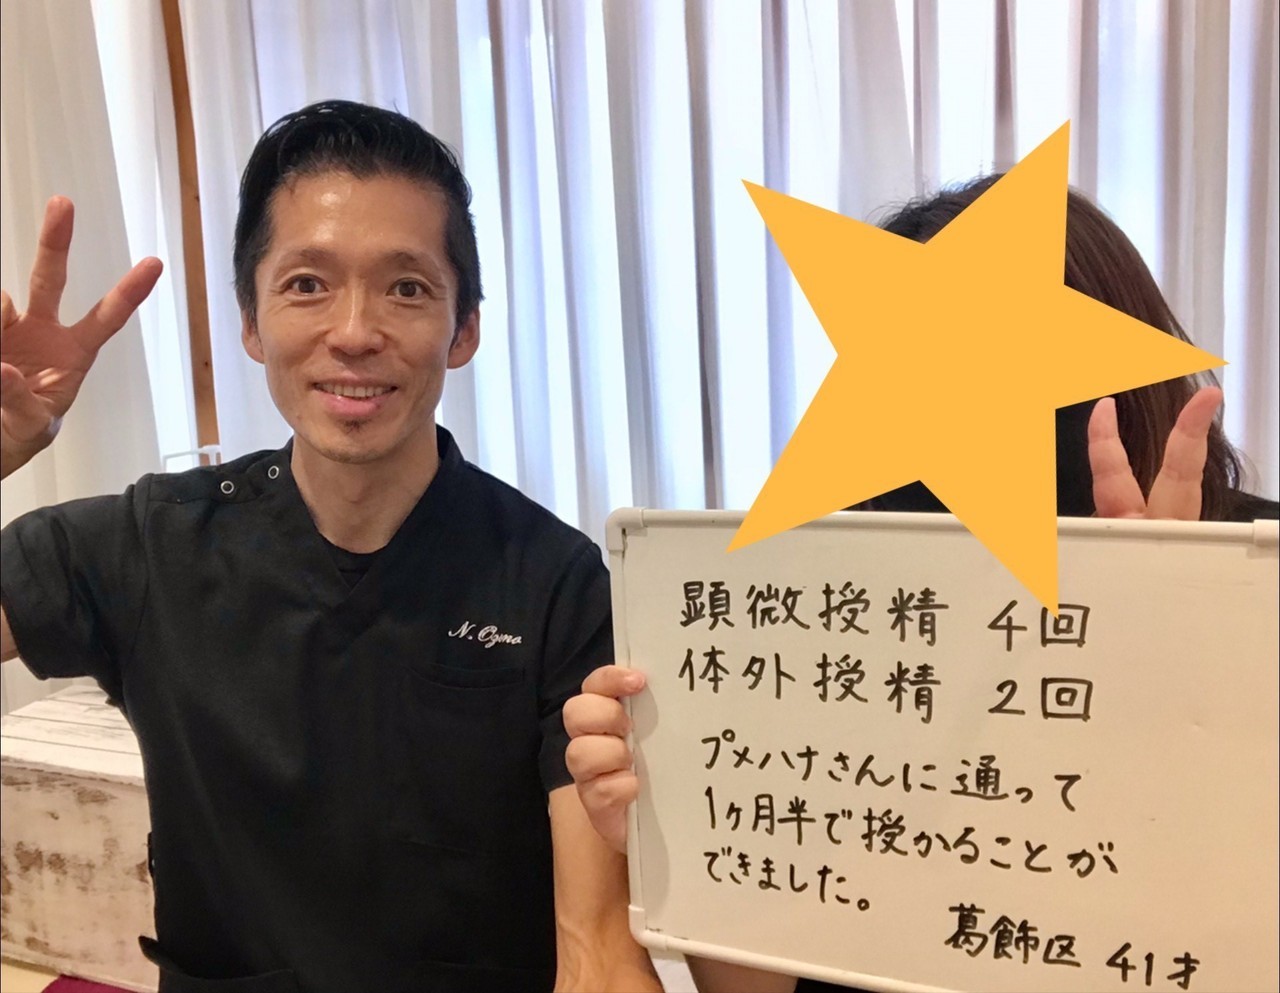 N. Ozono
顕微授精 4回
体外授精 2回
プメハナさんに通って
1ヶ月半で授かることが
できました。
葛飾区 41才